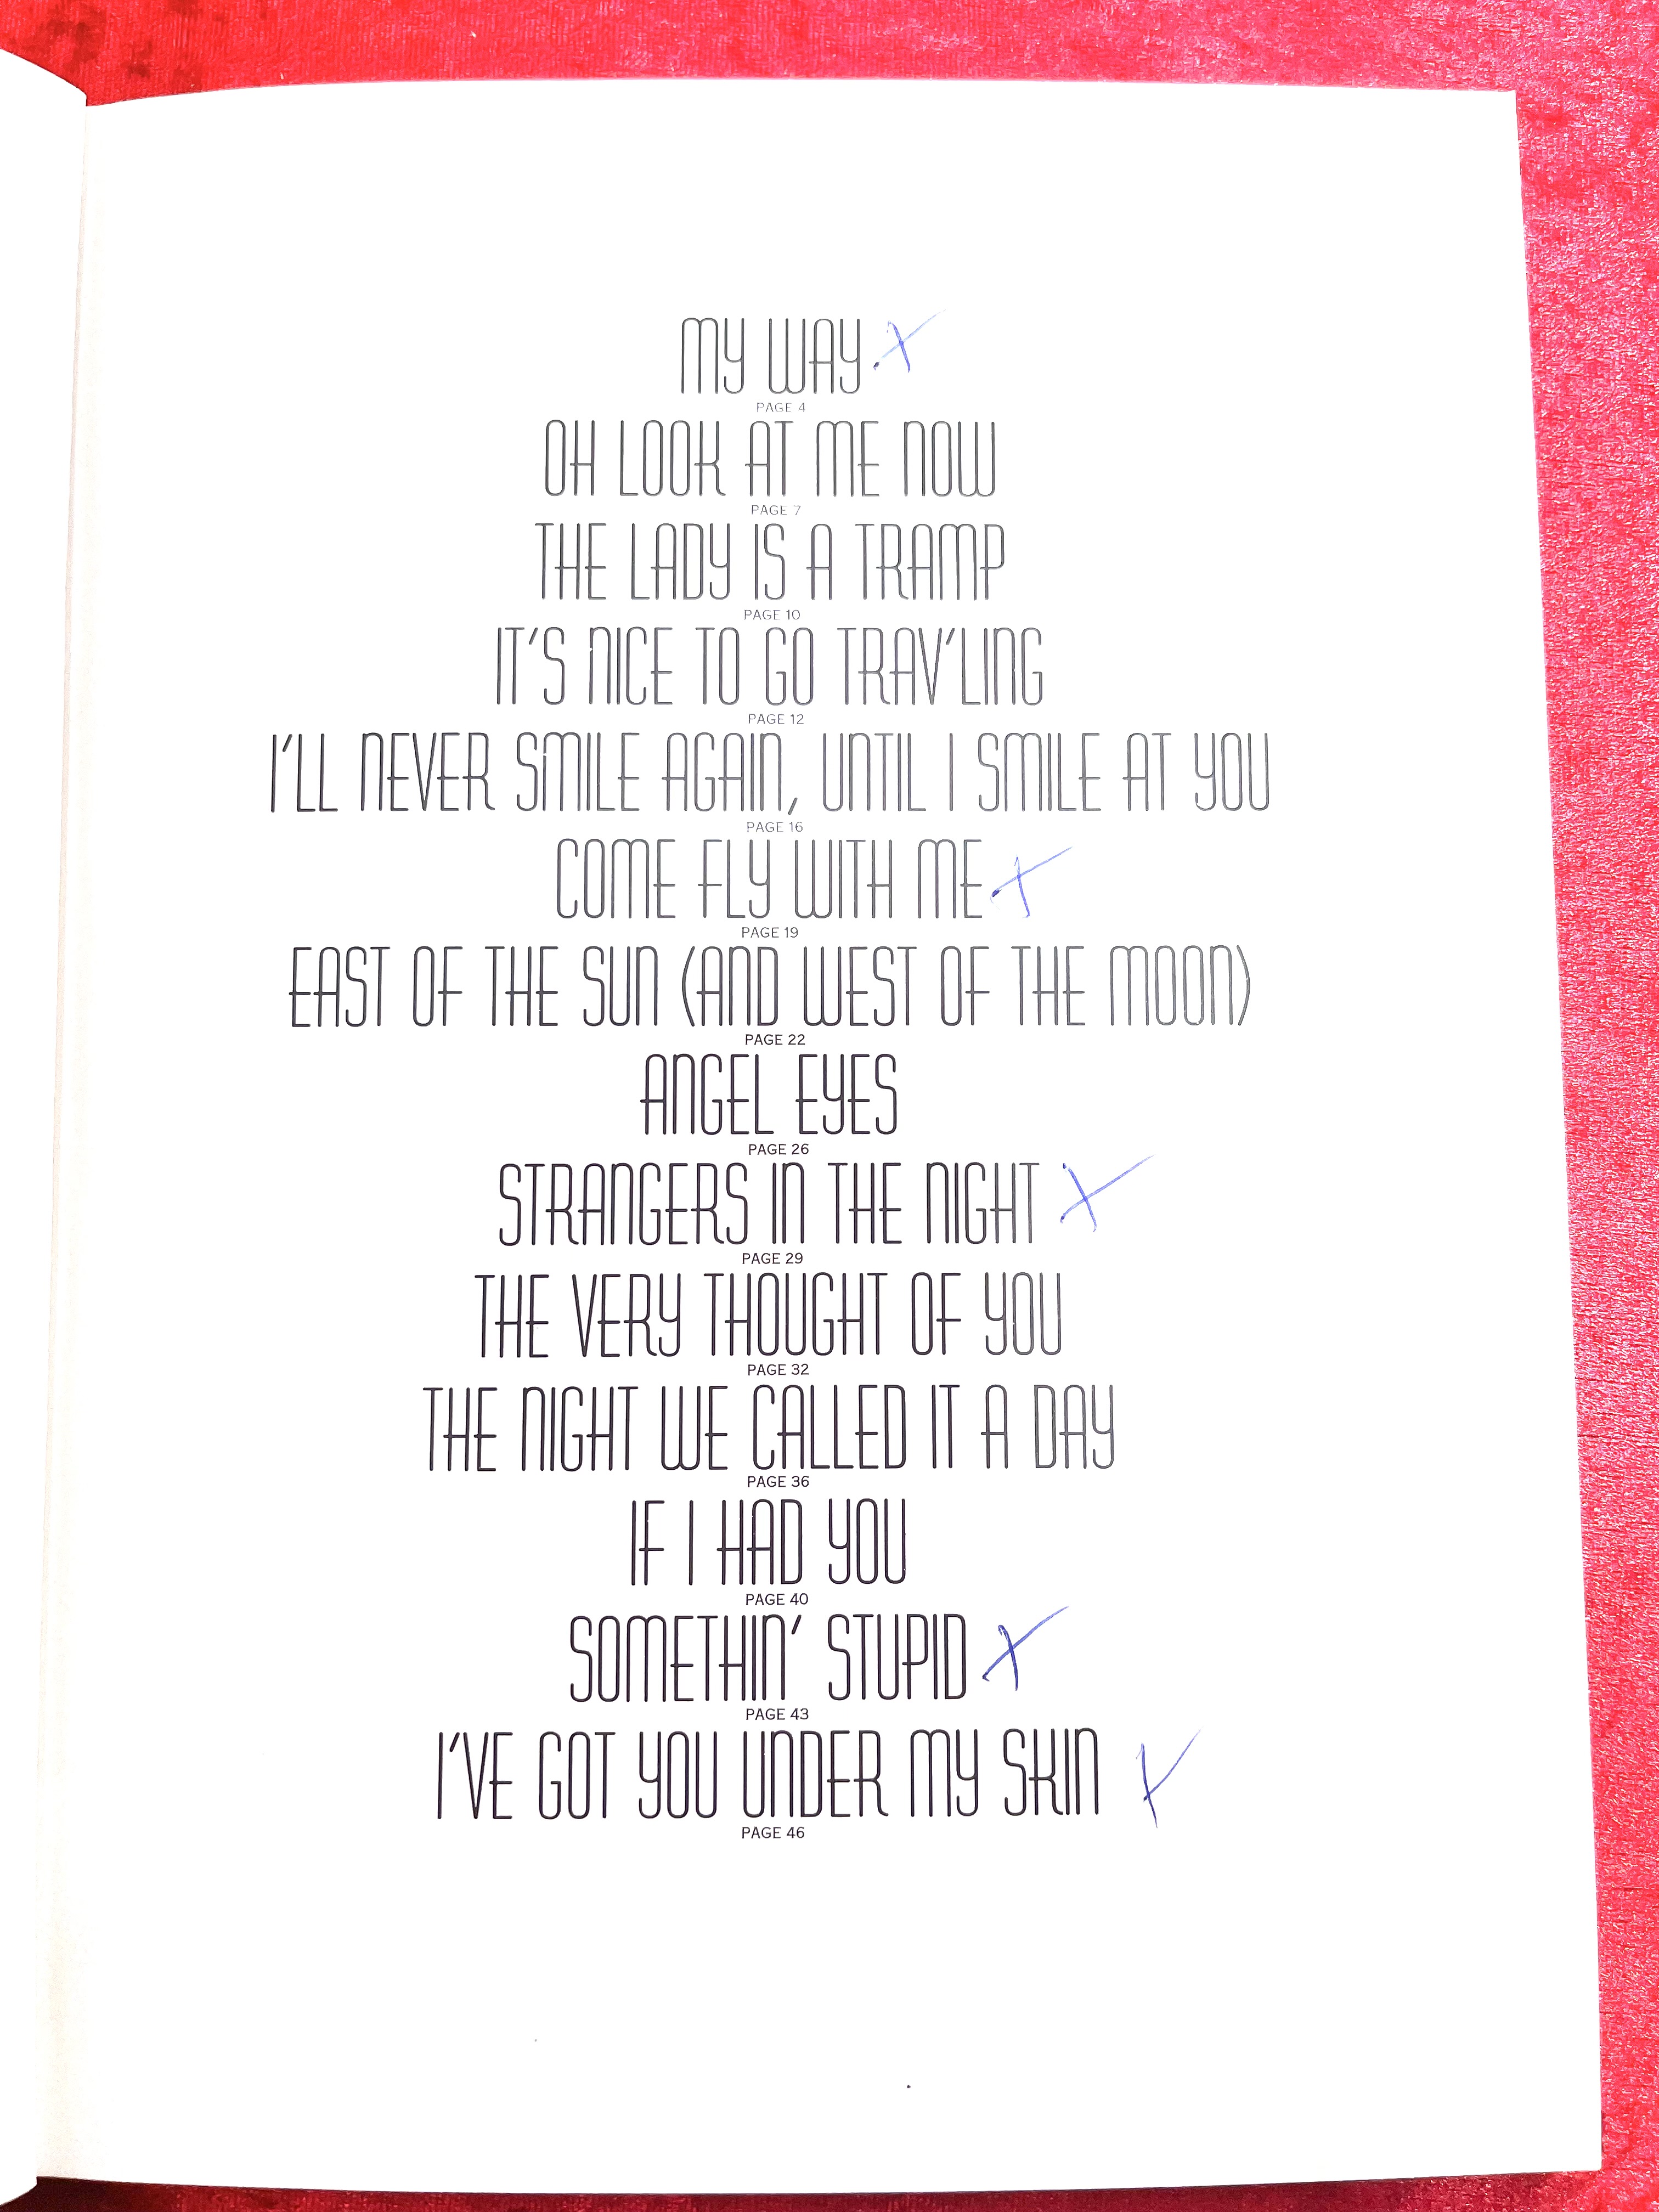 MY WAY
PAGE 4
OH LOOK AT ME NOW
PAGE 7
THE LADY IS A TRAMP
PAGE 10
IT'S NICE TO GO TRAV'LING
PAGE 12
I'LL NEVER SMILE AGAIN, UNTIL I SMILE AT YOU
PAGE 16
COME FLY WITH ME
PAGE 19
EAST OF THE SUN (AND WEST OF THE MOON)
PAGE 22
ANGEL EYES
PAGE 26
STRANGERS IN THE NIGHT
PAGE 29
THE VERY THOUGHT OF YOU
PAGE 32
THE NIGHT WE CALLED IT A DAY
PAGE 36
IF I HAD YOU
PAGE 40
SOMETHIN' STUPID
PAGE 43
I'VE GOT YOU UNDER MY SKIN
PAGE 46